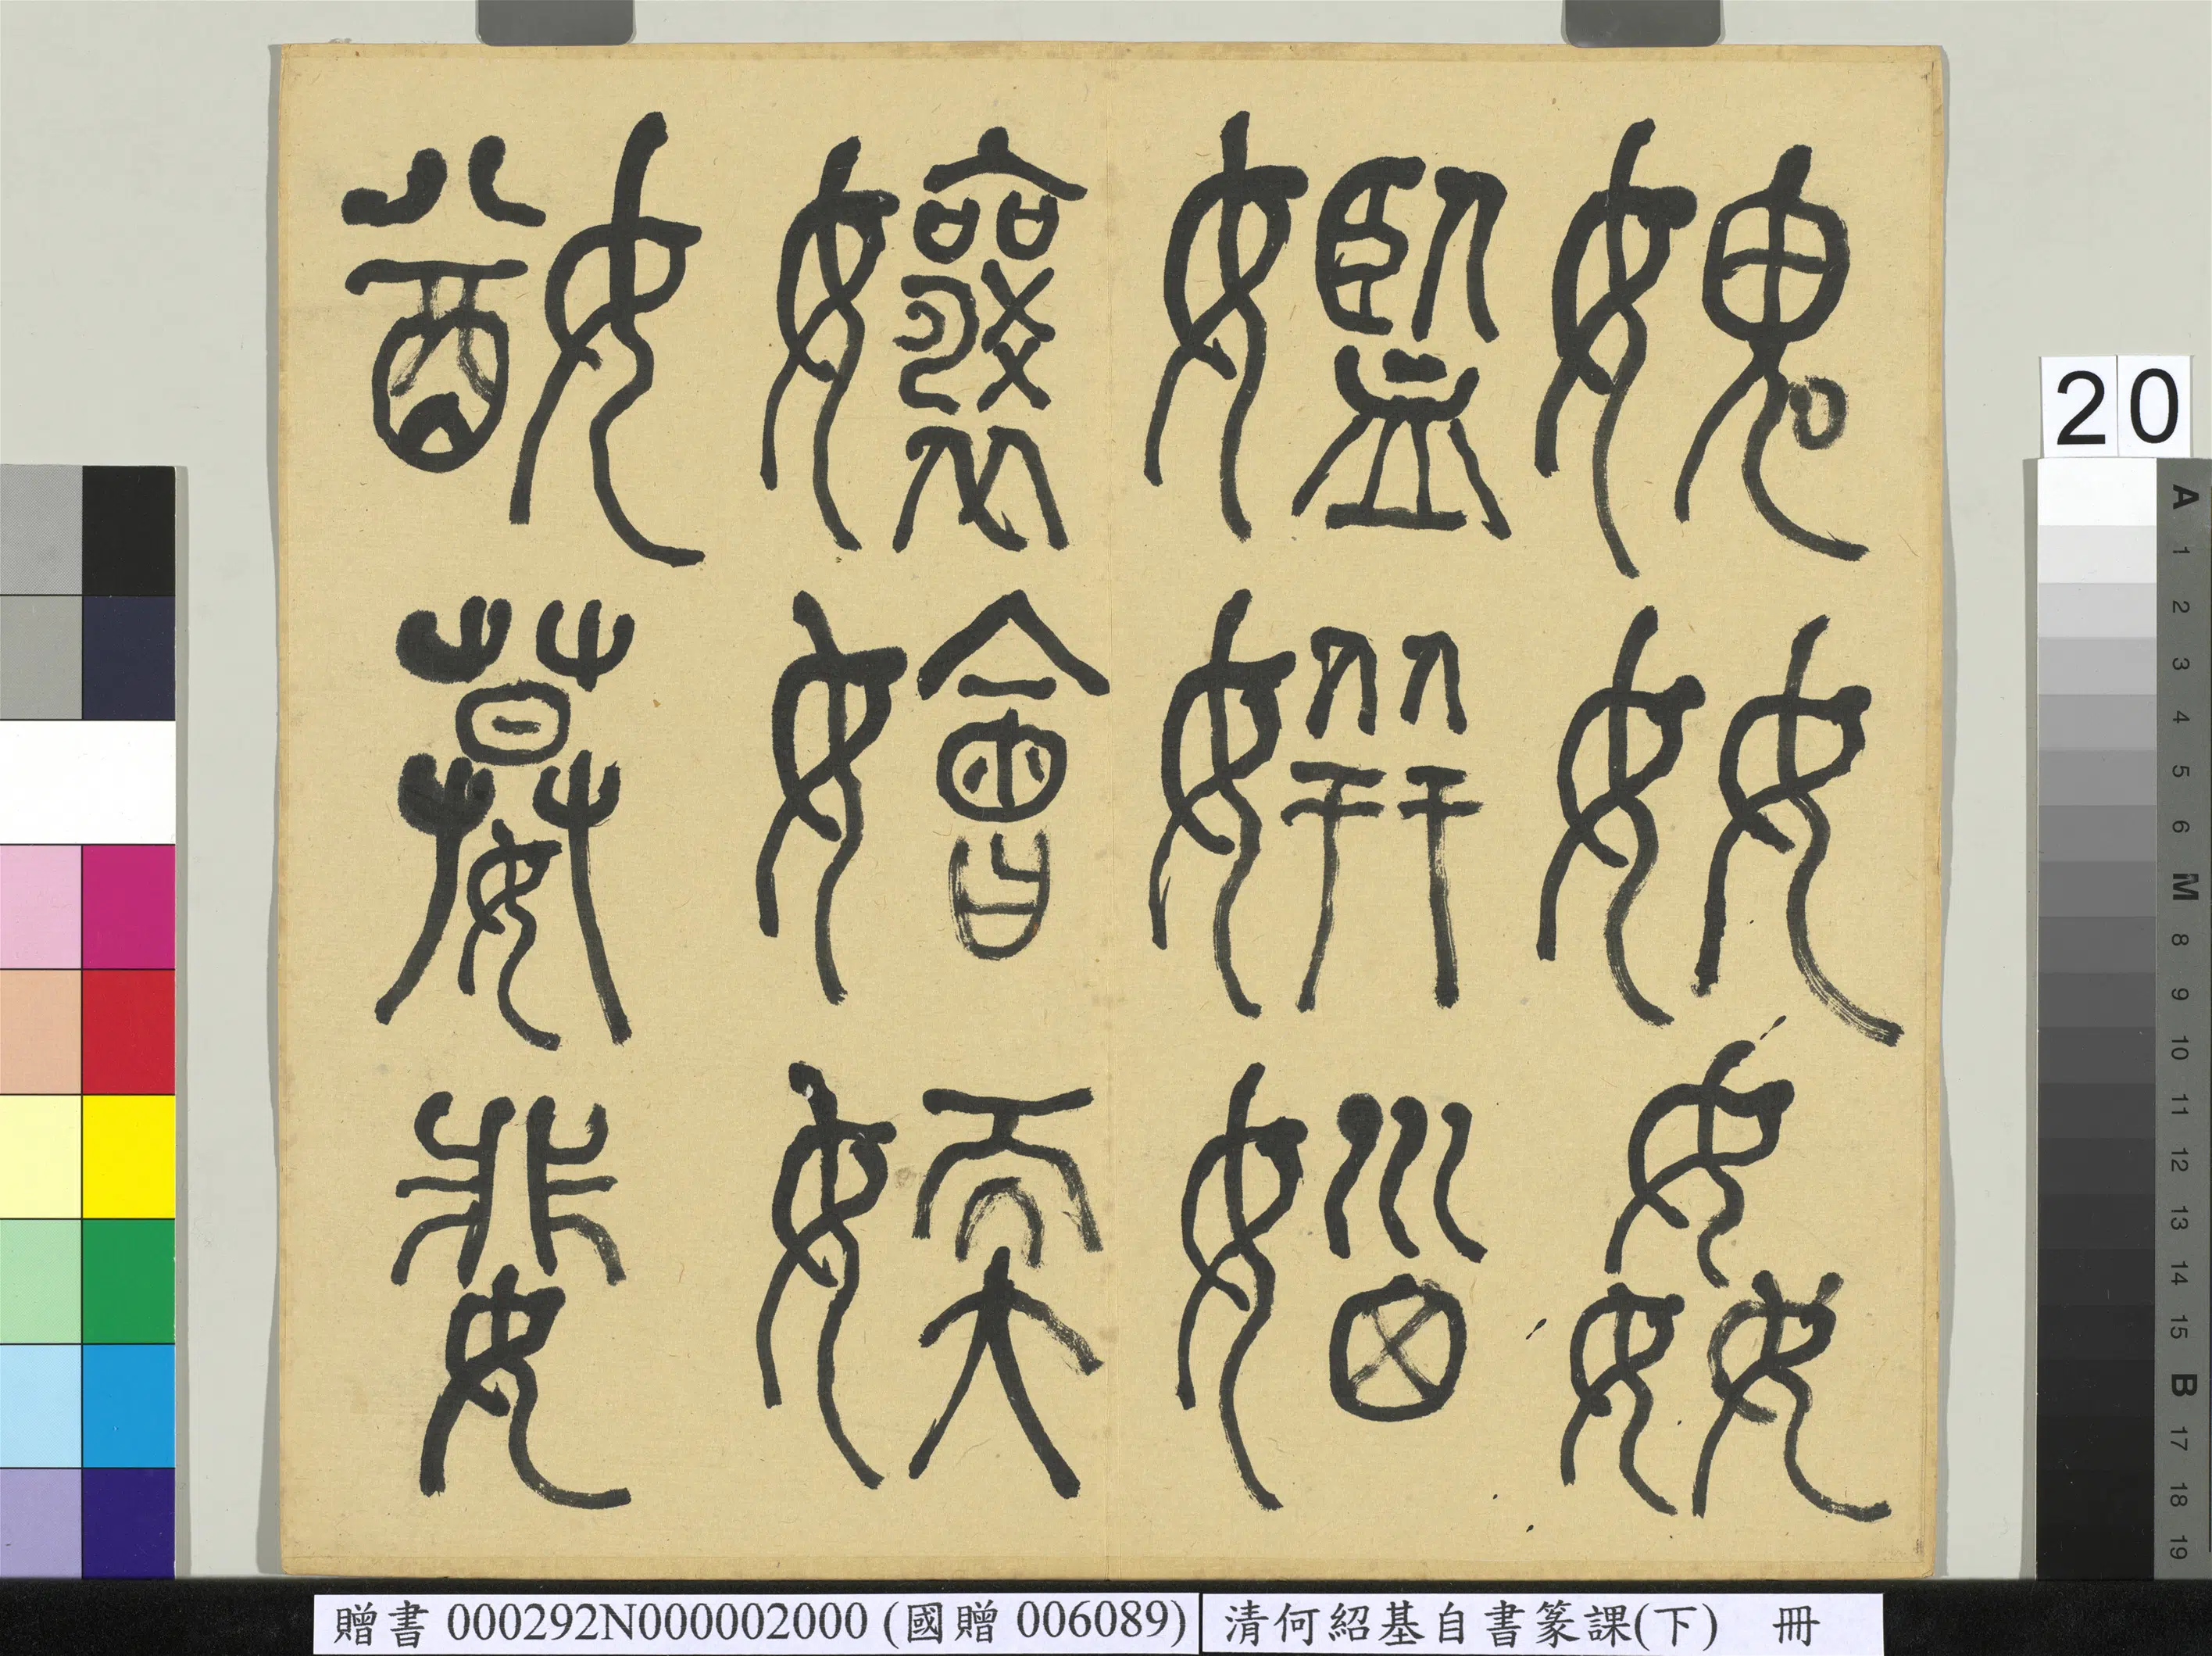 媨嫫婓
孃嬒媆
㜮姘㛴
媿奻姦
20
A 1 2 3 4 5 6 M 8 9 10 11 12 13 14 15 B 17 18 19
贈書 000292N000002000 (國贈 006089)
清何紹基自書篆課(下) 冊